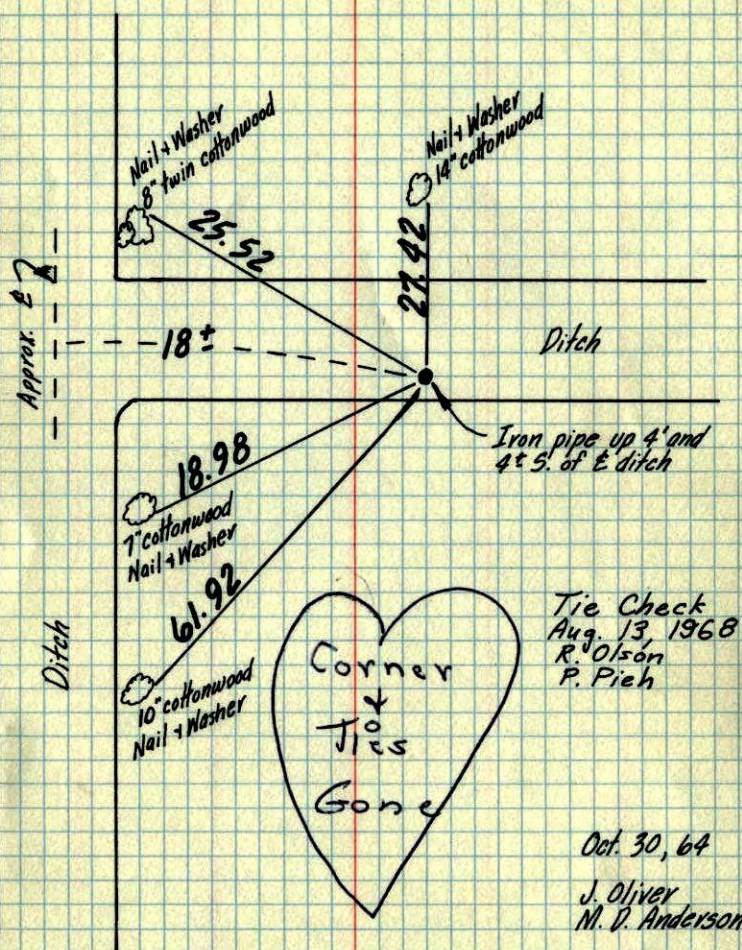 Nail & Washer
8" twin cottonwood
Nail & Washer
14" cottonwood
25.52
27.42
Approx. ℄
18 ±
Ditch
Iron pipe up 4' and
4± S. of ℄ ditch
18.98
7" cottonwood
Nail & Washer
61.92
10" cottonwood
Nail & Washer
Ditch
Corner
&
Ties
Gone
Tie Check
Aug. 13, 1968
R. Olson
P. Pieh
Oct. 30, 64
J. Oliver
M. D. Anderson